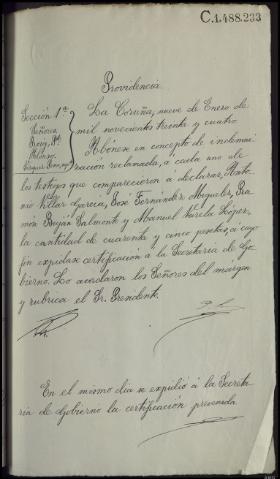 C.1.488.233
Providencia
Sección 1ª
Señores
La Coruña, nueve de Enero de
mil novecientos treinta y cuatro
Abónen en concepto de indemni
zación reclamada, á cada uno de
los testigos que comparecieron á declarar, Anto
nio Villar García, José Fernández Miguélez, Ra
món Buján Salmonte y Manuel Varela López,
la cantidad de cuarenta y cinco pesetas, á cuyo
fin expídase certificación á la Secretaría de Go
bierno. Lo acordaron los Señores del márgen
y rubrica el Sr. Presidente.
En el mismo día se expidió á la Secreta
ría de Gobierno la certificación prevenida